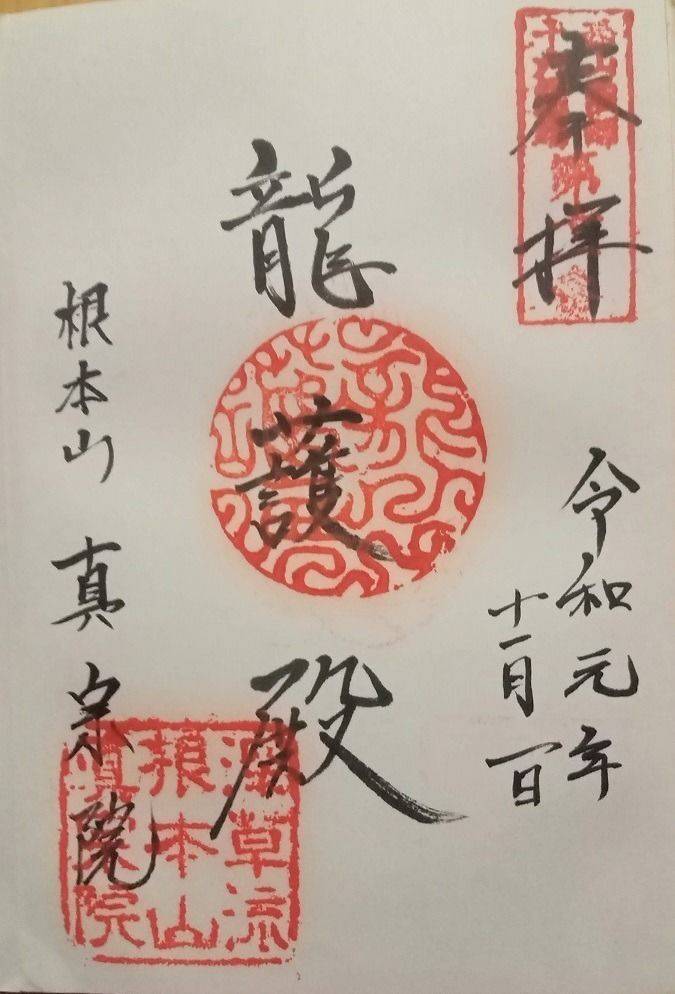 奉拝
令和元年
十一月一日
龍護殿
根本山 真宗院
深草流
根本山
真宗院